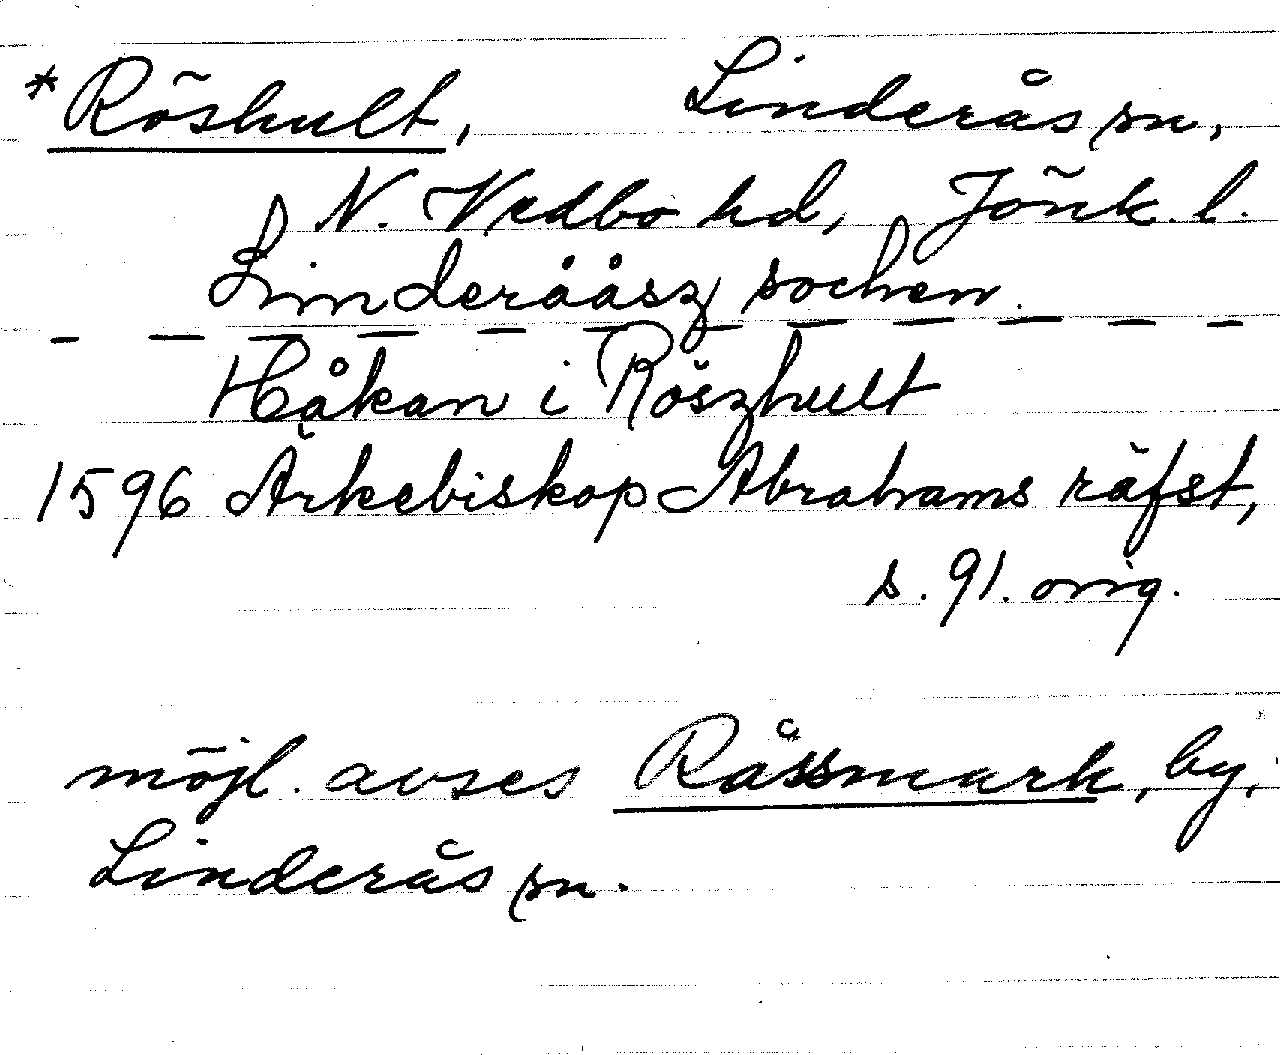 *Röshult, Linderås sn,
N. Vedbo hd, Jönk. l.
Linderååsz sochen.
Håkan i Röszhult
1596 Ärkebiskop Abrahams räfst,
s. 91. orig.
möjl. avses Råssmark, by,
Linderås sn.